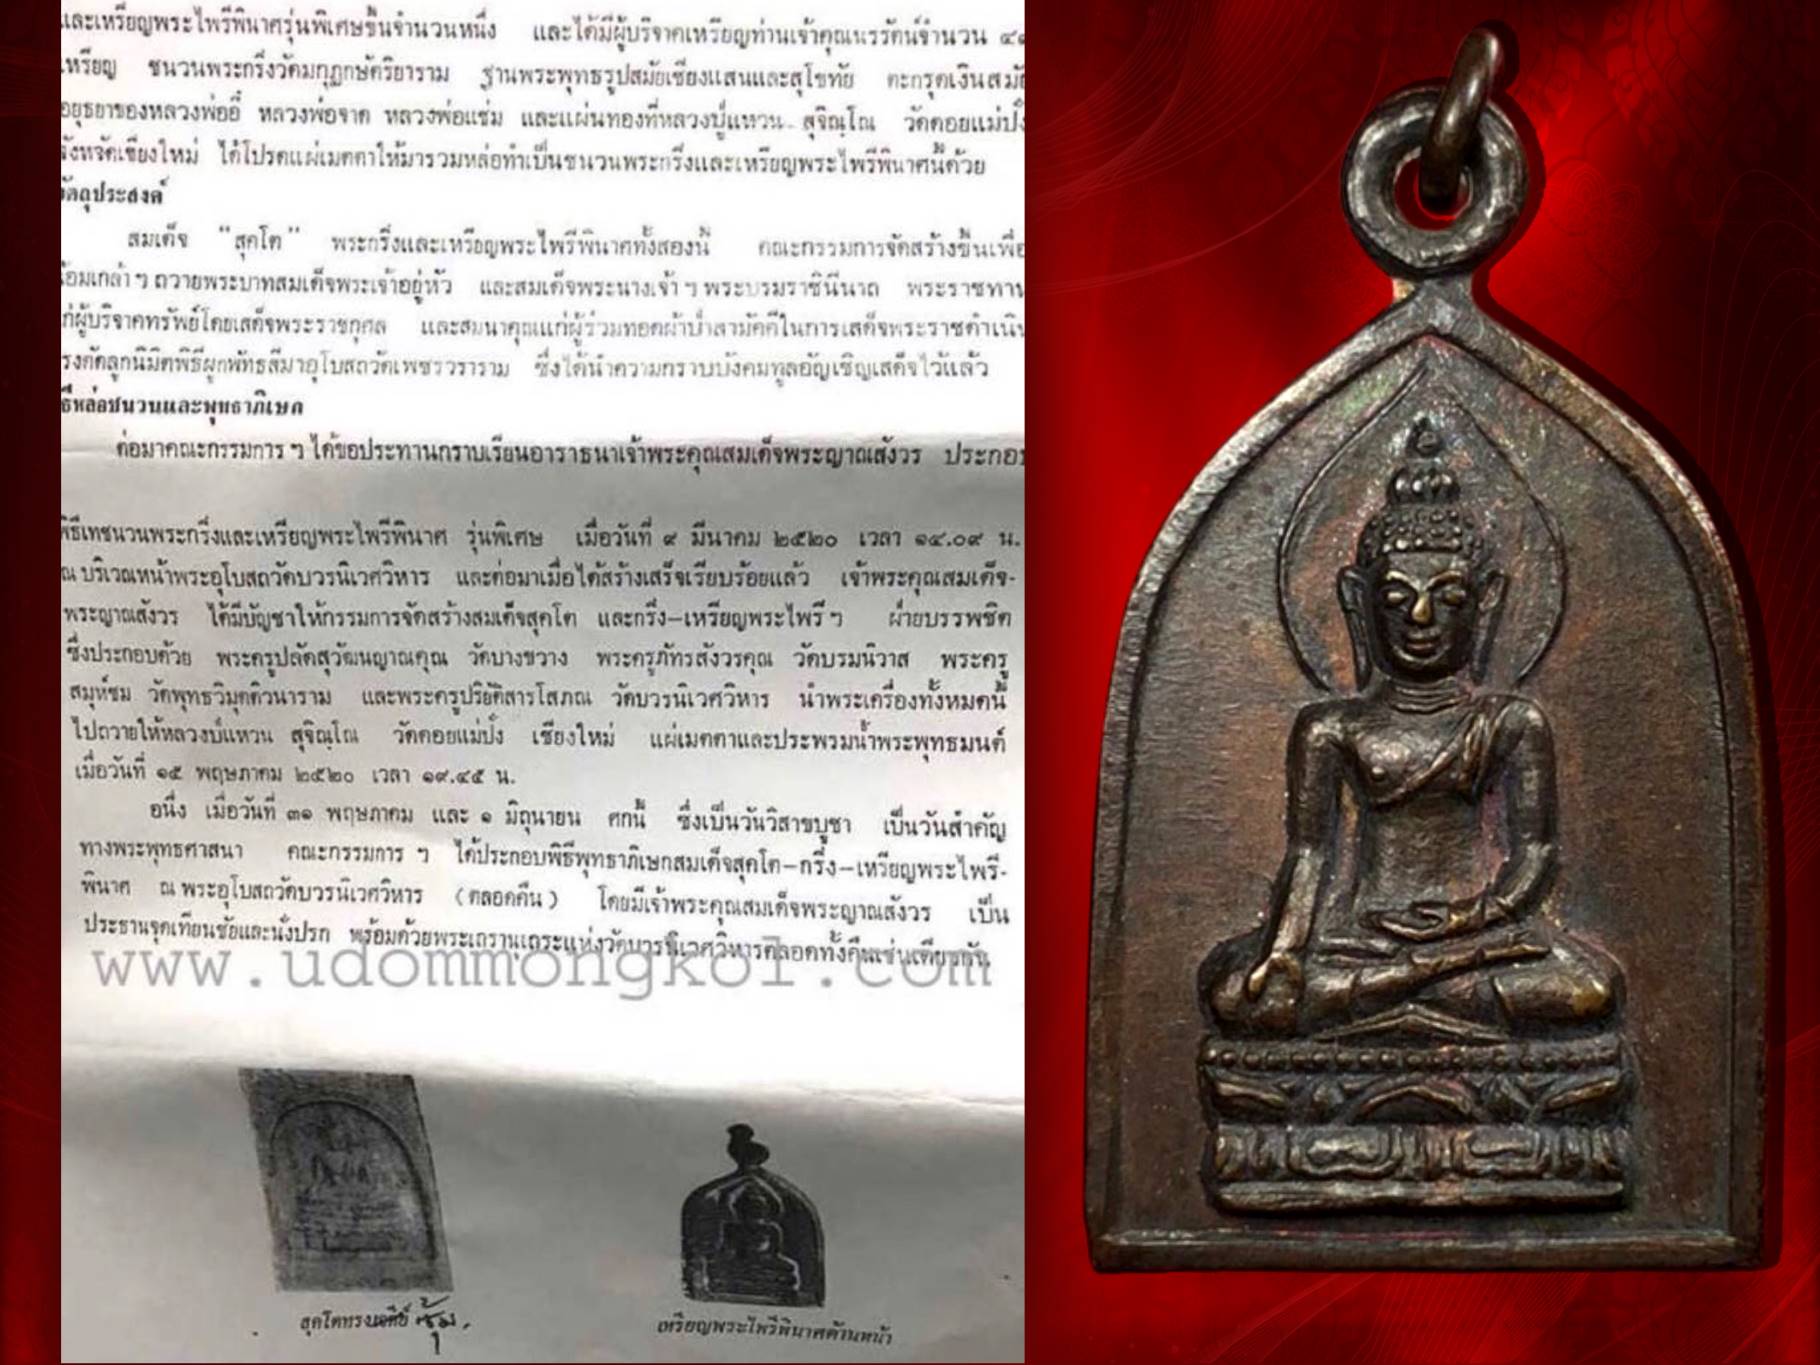 และเหรียญพระไพรีพินาศรุ่นพิเศษขึ้นจำนวนหนึ่ง และได้มีผู้บริจาคเหรียญท่านเจ้าคุณนรรัตน์จำนวน
เหรียญ ชนวนพระกริ่งวัดมกุฏกษัตริยาราม ฐานพระพุทธรูปสมัยเชียงแสนและสุโขทัย ตะกรุดเงินสมัย
อยุธยาของหลวงพ่ออี๋ หลวงพ่อจาด หลวงพ่อแช่ม และแผ่นทองที่หลวงปู่แหวน สุจิณฺโณ วัดดอยแม่ปั๋ง
จังหวัดเชียงใหม่ ได้โปรดแผ่เมตตาให้มารวมหล่อทำเป็นชนวนพระกริ่งและเหรียญพระไพรีพินาศนี้ด้วย
วัตถุประสงค์
สมเด็จ "สุคโต" พระกริ่งและเหรียญพระไพรีพินาศทั้งสองนี้ คณะกรรมการจัดสร้างขึ้นเพื่อ
น้อมเกล้า ฯ ถวายพระบาทสมเด็จพระเจ้าอยู่หัว และสมเด็จพระนางเจ้า ฯ พระบรมราชินีนาถ พระราชทาน
แก่ผู้บริจาคทรัพย์โดยเสด็จพระราชกุศล และสมนาคุณแก่ผู้ร่วมทอดผ้าป่าสามัคคีในการเสด็จพระราชดำเนิน
ทรงตัดลูกนิมิตพิธีผูกพัทธสีมาอุโบสถวัดเพชรวราราม ซึ่งได้นำความกราบบังคมทูลอัญเชิญเสด็จไว้แล้ว
พิธีหล่อชนวนและพุทธาภิเษก
ต่อมาคณะกรรมการ ฯ ได้ขอประทานกราบเรียนอาราธนาเจ้าพระคุณสมเด็จพระญาณสังวร ประกอบ
พิธีเทชนวนพระกริ่งและเหรียญพระไพรีพินาศ รุ่นพิเศษ เมื่อวันที่ ๙ มีนาคม ๒๕๒๐ เวลา ๑๔.๐๙ น.
ณ บริเวณหน้าพระอุโบสถวัดบวรนิเวศวิหาร และต่อมาเมื่อได้สร้างเสร็จเรียบร้อยแล้ว เจ้าพระคุณสมเด็จ-
พระญาณสังวร ได้มีบัญชาให้กรรมการจัดสร้างสมเด็จสุคโต และกริ่ง-เหรียญพระไพรี ฯ ฝ่ายบรรพชิต
ซึ่งประกอบด้วย พระครูปลัดสุวัฒนญาณคุณ วัดบางขวาง พระครูภัทรสังวรคุณ วัดบรมนิวาส พระครู
สมุห์ชม วัดพุทธวิมุตติวนาราม และพระครูปริยัติสารโสภณ วัดบวรนิเวศวิหาร นำพระเครื่องทั้งหมดนี้
ไปถวายให้หลวงปู่แหวน สุจิณฺโณ วัดดอยแม่ปั๋ง เชียงใหม่ แผ่เมตตาและประพรมน้ำพระพุทธมนต์
เมื่อวันที่ ๑๕ พฤษภาคม ๒๕๒๐ เวลา ๑๙.๔๕ น.
อนึ่ง เมื่อวันที่ ๓๑ พฤษภาคม และ ๑ มิถุนายน ศกนี้ ซึ่งเป็นวันวิสาขบูชา เป็นวันสำคัญ
ทางพระพุทธศาสนา คณะกรรมการ ฯ ได้ประกอบพิธีพุทธาภิเษกสมเด็จสุคโต-กริ่ง-เหรียญพระไพรี-
พินาศ ณ พระอุโบสถวัดบวรนิเวศวิหาร (ตลอดคืน) โดยมีเจ้าพระคุณสมเด็จพระญาณสังวร เป็น
ประธานจุดเทียนชัยและนั่งปรก พร้อมด้วยพระเถรานุเถระแห่งวัดบวรนิเวศวิหารตลอดทั้งคืนเช่นเดียวกัน
www.udommongkol.com
สุคโตทรงเจดีย์ ซุ้ม
เหรียญพระไพรีพินาศด้านหน้า